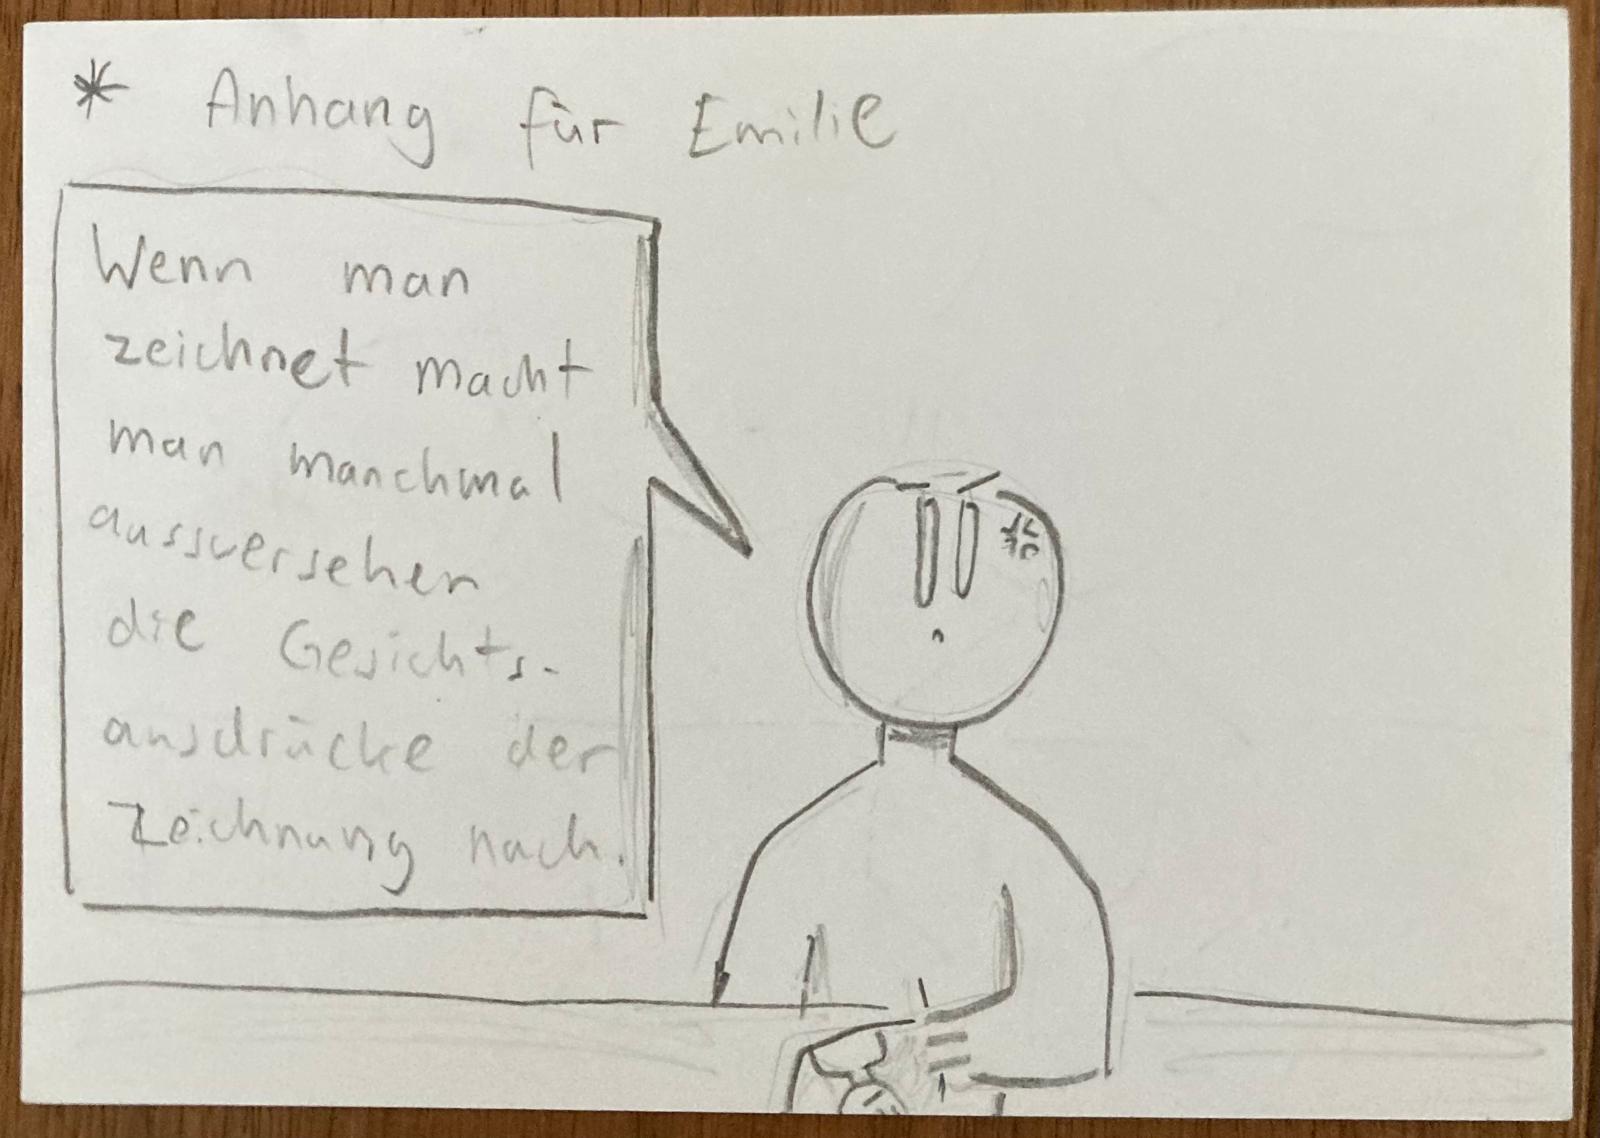 * Anhang für Emilie
Wenn man
zeichnet macht
man manchmal
aussversehen
die Gesichts-
ausdrücke der
Zeichnung nach.